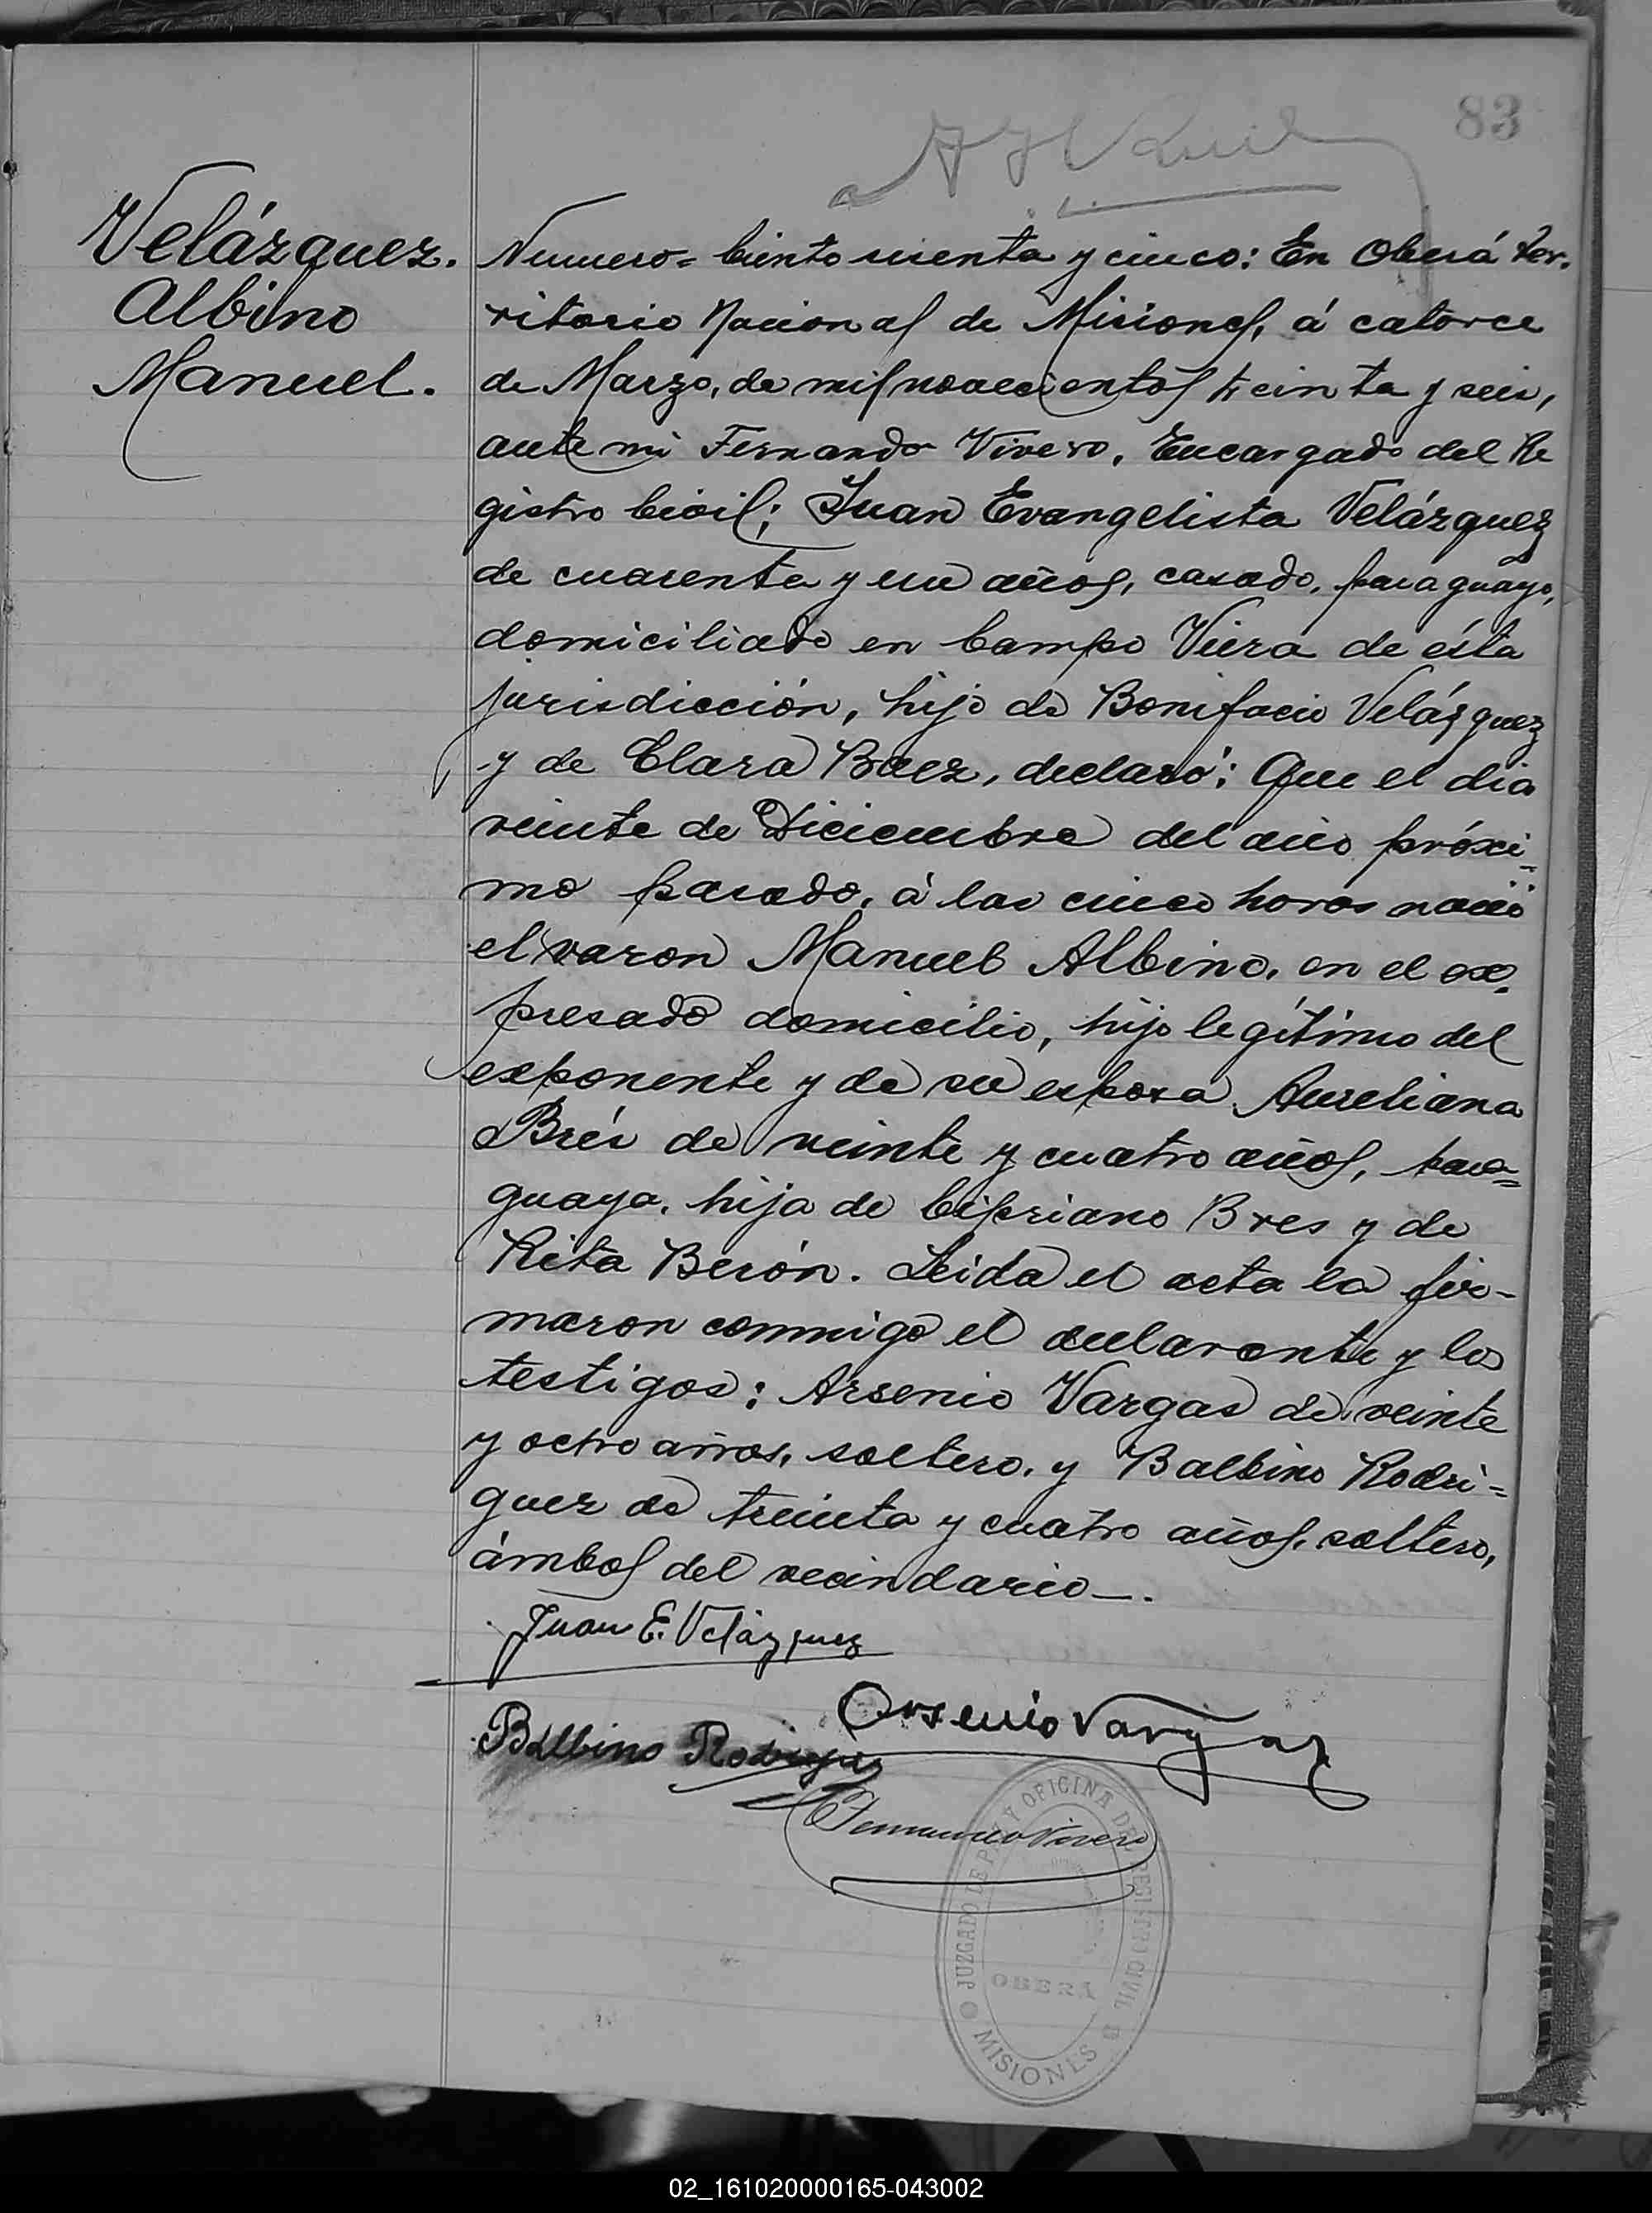 83
Velázquez.
Albino
Manuel.
Numero= Ciento sesenta y cinco: En Oberá ter.
ritorio Nacional de Misiones, á catorce
de Marzo, de mil novecientos treinta y seis,
ante mi Fernando Vivero, Encargado del Re
gistro Civil; Juan Evangelista Velázquez
de cuarenta y un años, casado, paraguayo,
domiciliado en Campo Viera de ésta
jurisdicción, hijo de Bonifacio Velázquez
y de Clara Baez, declaró: Que el dia
veinte de Diciembre del año próxi-
mo pasado, á las cinco horas nació
el varon Manuel Albino, en el ex-
presado domicilio, hijo legítimo del
exponente y de su esposa Aureliana
Brés de veinte y cuatro años, para=
guaya, hija de Cipriano Bres y de
Rita Berón. Leida el acta la fir-
maron conmigo el declarante y los
testigos: Arsenio Vargas de veinte
y ocho años, soltero, y Balbino Rodri=
guez de treinta y cuatro años, soltero,
ámbos del vecindario—.
Juan E. Velázquez
Arsenio Vargas
Balbino Rodriguez
Fernando Vivero
JUZGADO DE PAZ Y OFICINA DEL REGISTRO CIVIL
OBERÁ
MISIONES
02_161020000165-043002